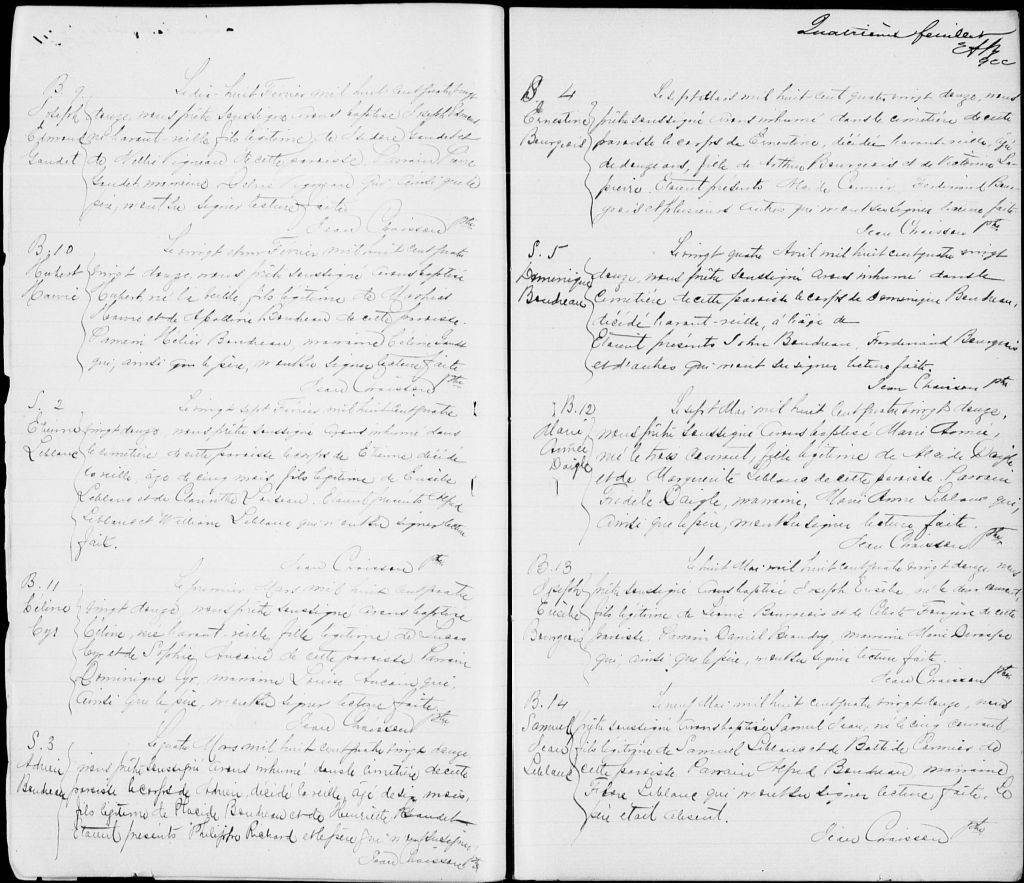 B. 9
Joseph
Edmond
Gaudet
Le dix huit Fevrier mil huit cent quatre vingt
douze, nous prêtre soussigné avons baptisé Joseph Edmond
né l'avant-veille, fils légitime de Isidore Gaudet et
de Nellie Vigneau de cette paroisse. Parrain
Gaudet marraine Vigneau qui ainsi que le
père, n'ont su signer lecture faite
Jean Chaisson ptre
B. 10
Hubert
Le vingt Fevrier mil huit cent quatre
vingt douze, nous prêtre soussigné avons baptisé
Hubert né la veille, fils légitime de
et de Apolline Boudreau de cette paroisse.
Parrain Boudreau, marraine Céleste
qui, ainsi que le père, n'ont su signer lecture faite
Jean Chaisson ptre
S. 2
Etienne
Leblanc
Le vingt sept Fevrier mil huit cent quatre
vingt douze, nous prêtre soussigné avons inhumé dans
le cimetière de cette paroisse le corps de Etienne décédé
la veille, âgé de cinq mois, fils légitime de Eusèbe
Leblanc et de Etaient présents Alfred
Leblanc et William Leblanc qui n'ont su signer lecture
faite.
Jean Chaisson ptre
B. 11
Céline
Cyr
Le premier Mars mil huit cent quatre
vingt douze, nous prêtre soussigné avons baptisé
Céline, née l'avant-veille fille légitime de
Cyr et de Sophie Aucoin de cette paroisse Parrain
Dominique Cyr, marraine Louise Aucoin qui,
ainsi que le père, n'ont su signer lecture faite.
Jean Chaisson ptre
S. 3
Adrien
Boudreau
Le quatre Mars mil huit cent quatre vingt douze
nous prêtre soussigné avons inhumé dans le cimetière de cette
paroisse le corps de Adrien, décédé la veille, âgé de six mois,
fils légitime de Placide Boudreau et de Henriette Gaudet
Etaient présents Philippe Richard et le père qui n'ont su signer,
Jean Chaisson ptre
Quatrième feuillet
S 4
Ernestine
Bourgeois
Le sept Mars mil huit cent quatre vingt douze, nous
prêtre soussigné avons inhumé dans le cimetière de cette
paroisse le corps de Ernestine, décédée l'avant-veille, âgée
de douze ans, fille de Arthur Bourgeois et de Victorine La-
pierre. Etaient présents Cormier, Ferdinand Bour-
geois et plusieurs autres qui n'ont su signer lecture faite
Jean Chaisson ptre
S. 5
Dominique
Boudreau
Le vingt quatre Avril mil huit cent quatre vingt
douze, nous prêtre soussigné avons inhumé dans le
cimetière de cette paroisse le corps de Dominique Boudreau,
décédé l'avant-veille, à l'âge de
Etaient présents John Boudreau, Ferdinand Bourgeois
et d'autres qui n'ont su signer lecture faite.
Jean Chaisson ptre
B. 12
Marie
Aimée
Daigle
Le sept Mai mil huit cent quatre vingt douze,
nous prêtre soussigné avons baptisé Marie Aimée,
née le trois courant, fille légitime de Alcide Daigle
et de Marguerite Leblanc de cette paroisse. Parrain
Fidèle Daigle, marraine, Marie Anne Leblanc qui,
ainsi que le père, n'ont su signer lecture faite.
Jean Chaisson ptre
B. 13
Joseph
Eusèbe
Bourgeois
Le huit Mai mil huit cent quatre vingt douze, nous
prêtre soussigné avons baptisé Joseph Eusèbe, né le deux courant,
fils légitime de Bourgeois et de de cette
paroisse. Parrain Daniel Beaudry, marraine Marie
qui, ainsi que le père, n'ont su signer lecture faite.
Jean Chaisson ptre
B. 14
Samuel
Jean
Leblanc
Le neuf Mai mil huit cent quatre vingt douze, nous
prêtre soussigné avons baptisé Samuel Jean, né le cinq courant,
fils légitime de Samuel Leblanc et de Cormier de
cette paroisse Parrain Alfred Boudreau, marraine
Leblanc qui n'ont su signer lecture faite. Le
père était absent.
Jean Chaisson ptre